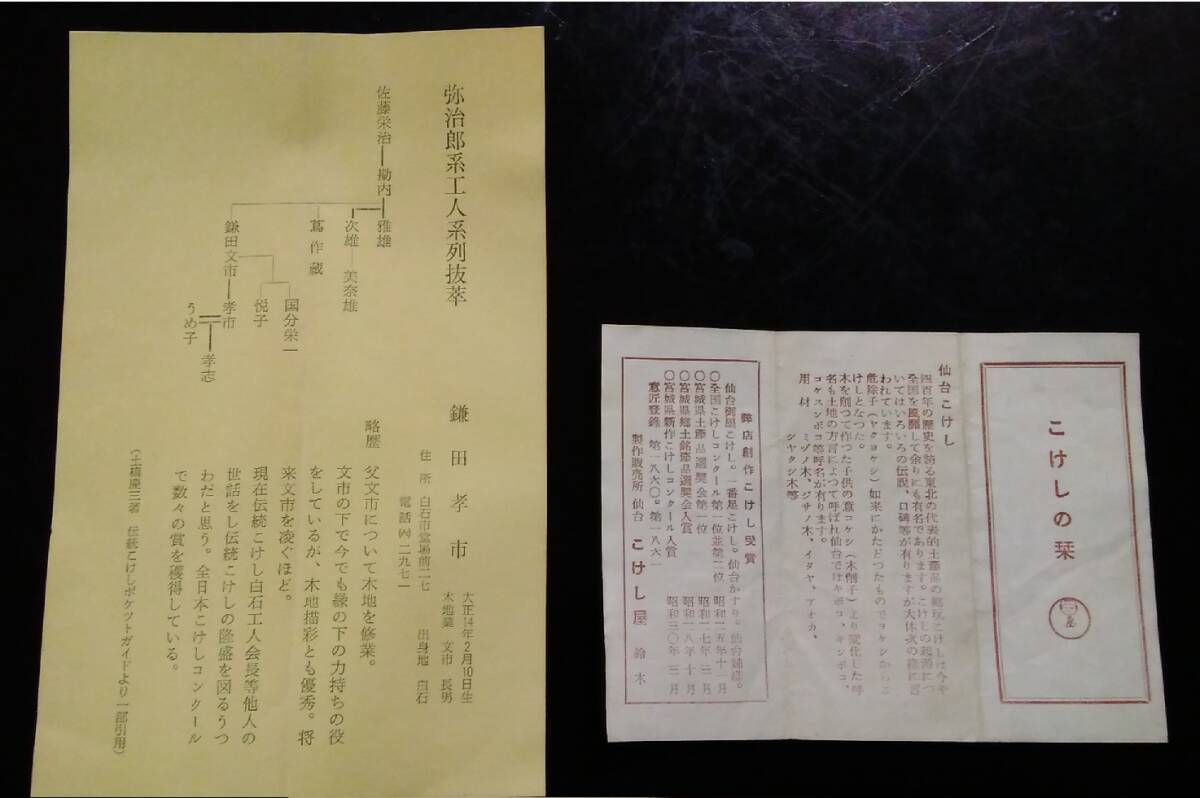 弥治郎系工人系列抜萃
佐藤栄治
勘内
雅雄
次雄
美奈雄
蔦作蔵
鎌田文市
国分栄一
悦子
孝市
うめ子
孝志
鎌田孝市
大正14年2月10日生
木地業 文市 長男
住所 白石市堂場前二七 出身地 白石
電話 二九七一
略歴 父文市について木地を修業。
文市の下で今でも縁の下の力持ちの役
をしているが、木地描彩とも優秀。将
来文市を凌ぐほど。
現在伝統こけし白石工人会長等他人の
世話をし伝統こけしの隆盛を図るうつ
わだと思う。全日本こけしコンクール
で数々の賞を獲得している。
(土橋慶三著 伝統こけしポケットガイドより一部引用)
こけしの栞
仙台こけし
四百年の歴史を誇る東北の代表的土産品の雛玩こけしは今や
全国を風靡して余りにも有名であります。こけしの起源につ
いてはいろいろの伝説、口碑等が有りますが大体次の様に言
われています。
危除子(ヤクヨケシ)如来にかたどつたものでヨケシからこ
けしとなつた。
木を削つて作つた子供の意コケシ(木削子)より変化した呼
名も土地の方言によつて呼ばれ仙台ではキボコ、キンボコ、
コケスンボコ等呼名が有ります。
用材 ミヅノ木、ジサノ木、イタヤ、アオカ、
シヤタシ木等
弊店創作こけし受賞
仙台御里こけし。一番星こけし。仙台かすり。仙台姉様。
○全国こけしコンクール第一位並第二位 昭和一五年十一月
○宮城県土産品選奨会第一位 昭和一七年三月
○宮城県郷土銘産品選奨会入賞 昭和二八年十月
○宮城県新作こけしコンクール入賞 昭和三〇年三月
意匠登録 第一八六〇。第一八六一
製作販売所 仙台 こけし屋 鈴木